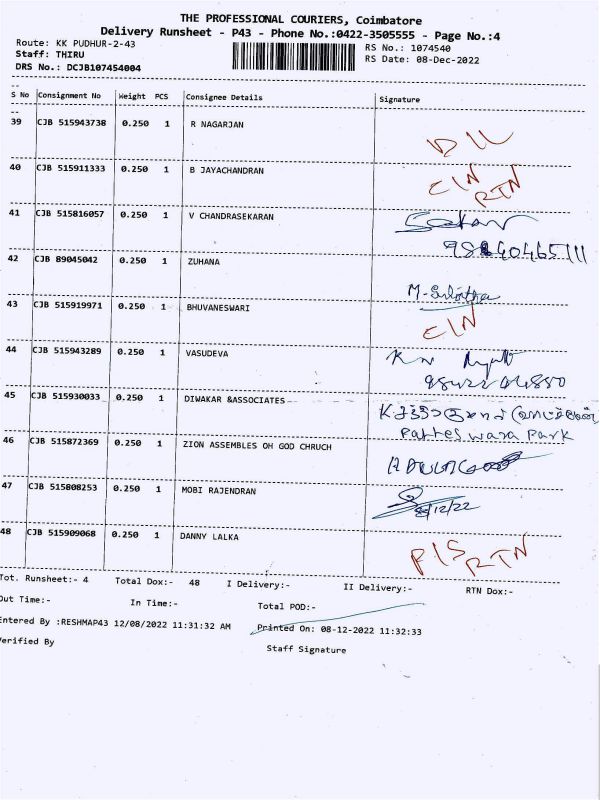 THE PROFESSIONAL COURIERS, Coimbatore
Delivery Runsheet - P43 - Phone No.:0422-3505555 - Page No.:4
Route: KK PUDHUR-2-43
RS No.: 1074540
Staff: THIRU
RS Date: 08-Dec-2022
DRS No.: DCJB107454004
S No Consignment No Weight PCS Consignee Details Signature
39 CJB 515943738 0.250 1 R NAGARJAN
40 CJB 515911333 0.250 1 B JAYACHANDRAN CIN RTN
41 CJB 515816057 0.250 1 V CHANDRASEKARAN
42 CJB 89045042 0.250 1 ZUHANA
43 CJB 515919971 0.250 1 BHUVANESWARI CIN
44 CJB 515943289 0.250 1 VASUDEVA
45 CJB 515930033 0.250 1 DIWAKAR &ASSOCIATES
Park
46 CJB 515872369 0.250 1 ZION ASSEMBLES OH GOD CHRUCH
47 CJB 515808253 0.250 1 MOBI RAJENDRAN
8/12/22
48 CJB 515909068 0.250 1 DANNY LALKA P/S RTN
Tot. Runsheet:- 4 Total Dox:- 48 I Delivery:- II Delivery:- RTN Dox:-
Out Time:- In Time:- Total POD:-
Entered By :RESHMAP43 12/08/2022 11:31:32 AM Printed On: 08-12-2022 11:32:33
Verified By Staff Signature